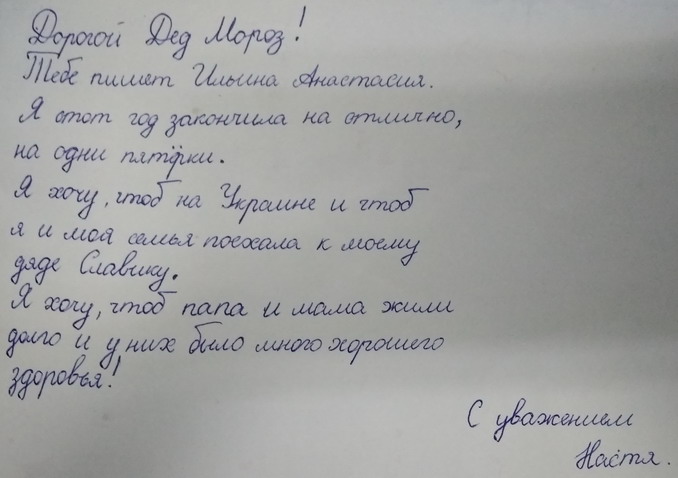 Дорогой Дед Мороз!
Тебе пишет Ильина Анастасия.
Я этот год закончила на отлично,
на одни пятёрки.
Я хочу, чтоб на Украине и чтоб
я и моя семья поехала к моему
дяде Славику.
Я хочу, чтоб папа и мама жили
долго и у них было много хорошего
здоровья!
С уважением
Настя.